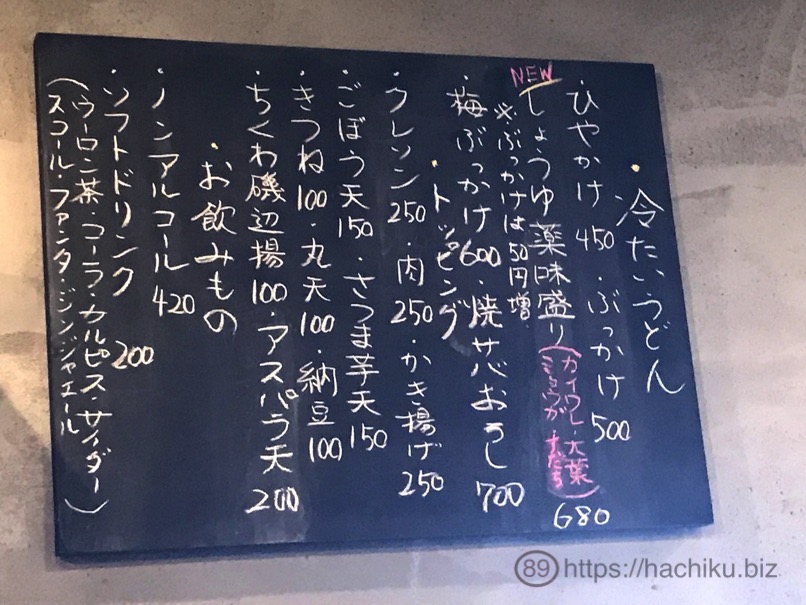 ・冷たいうどん
・ひやかけ 450・ぶっかけ 500
NEW
・しょうゆ薬味盛り(カイワレ・大葉 ミョウガ・すだち) 680
※ぶっかけは50円増
・梅ぶっかけ 600・焼サバおろし 700
・トッピング
・クレソン 250・肉 250・かき揚げ 250
・ごぼう天 150・さつま芋天 150
・きつね 100・丸天 100・納豆 100
・ちくわ磯辺揚 100・アスパラ天 200
・お飲みもの
・ノンアルコール 420
・ソフトドリンク 200
(ウーロン茶・コーラ・カルピス・サイダー
スコール・ファンタ・ジンジャエール)
89 https://hachiku.biz